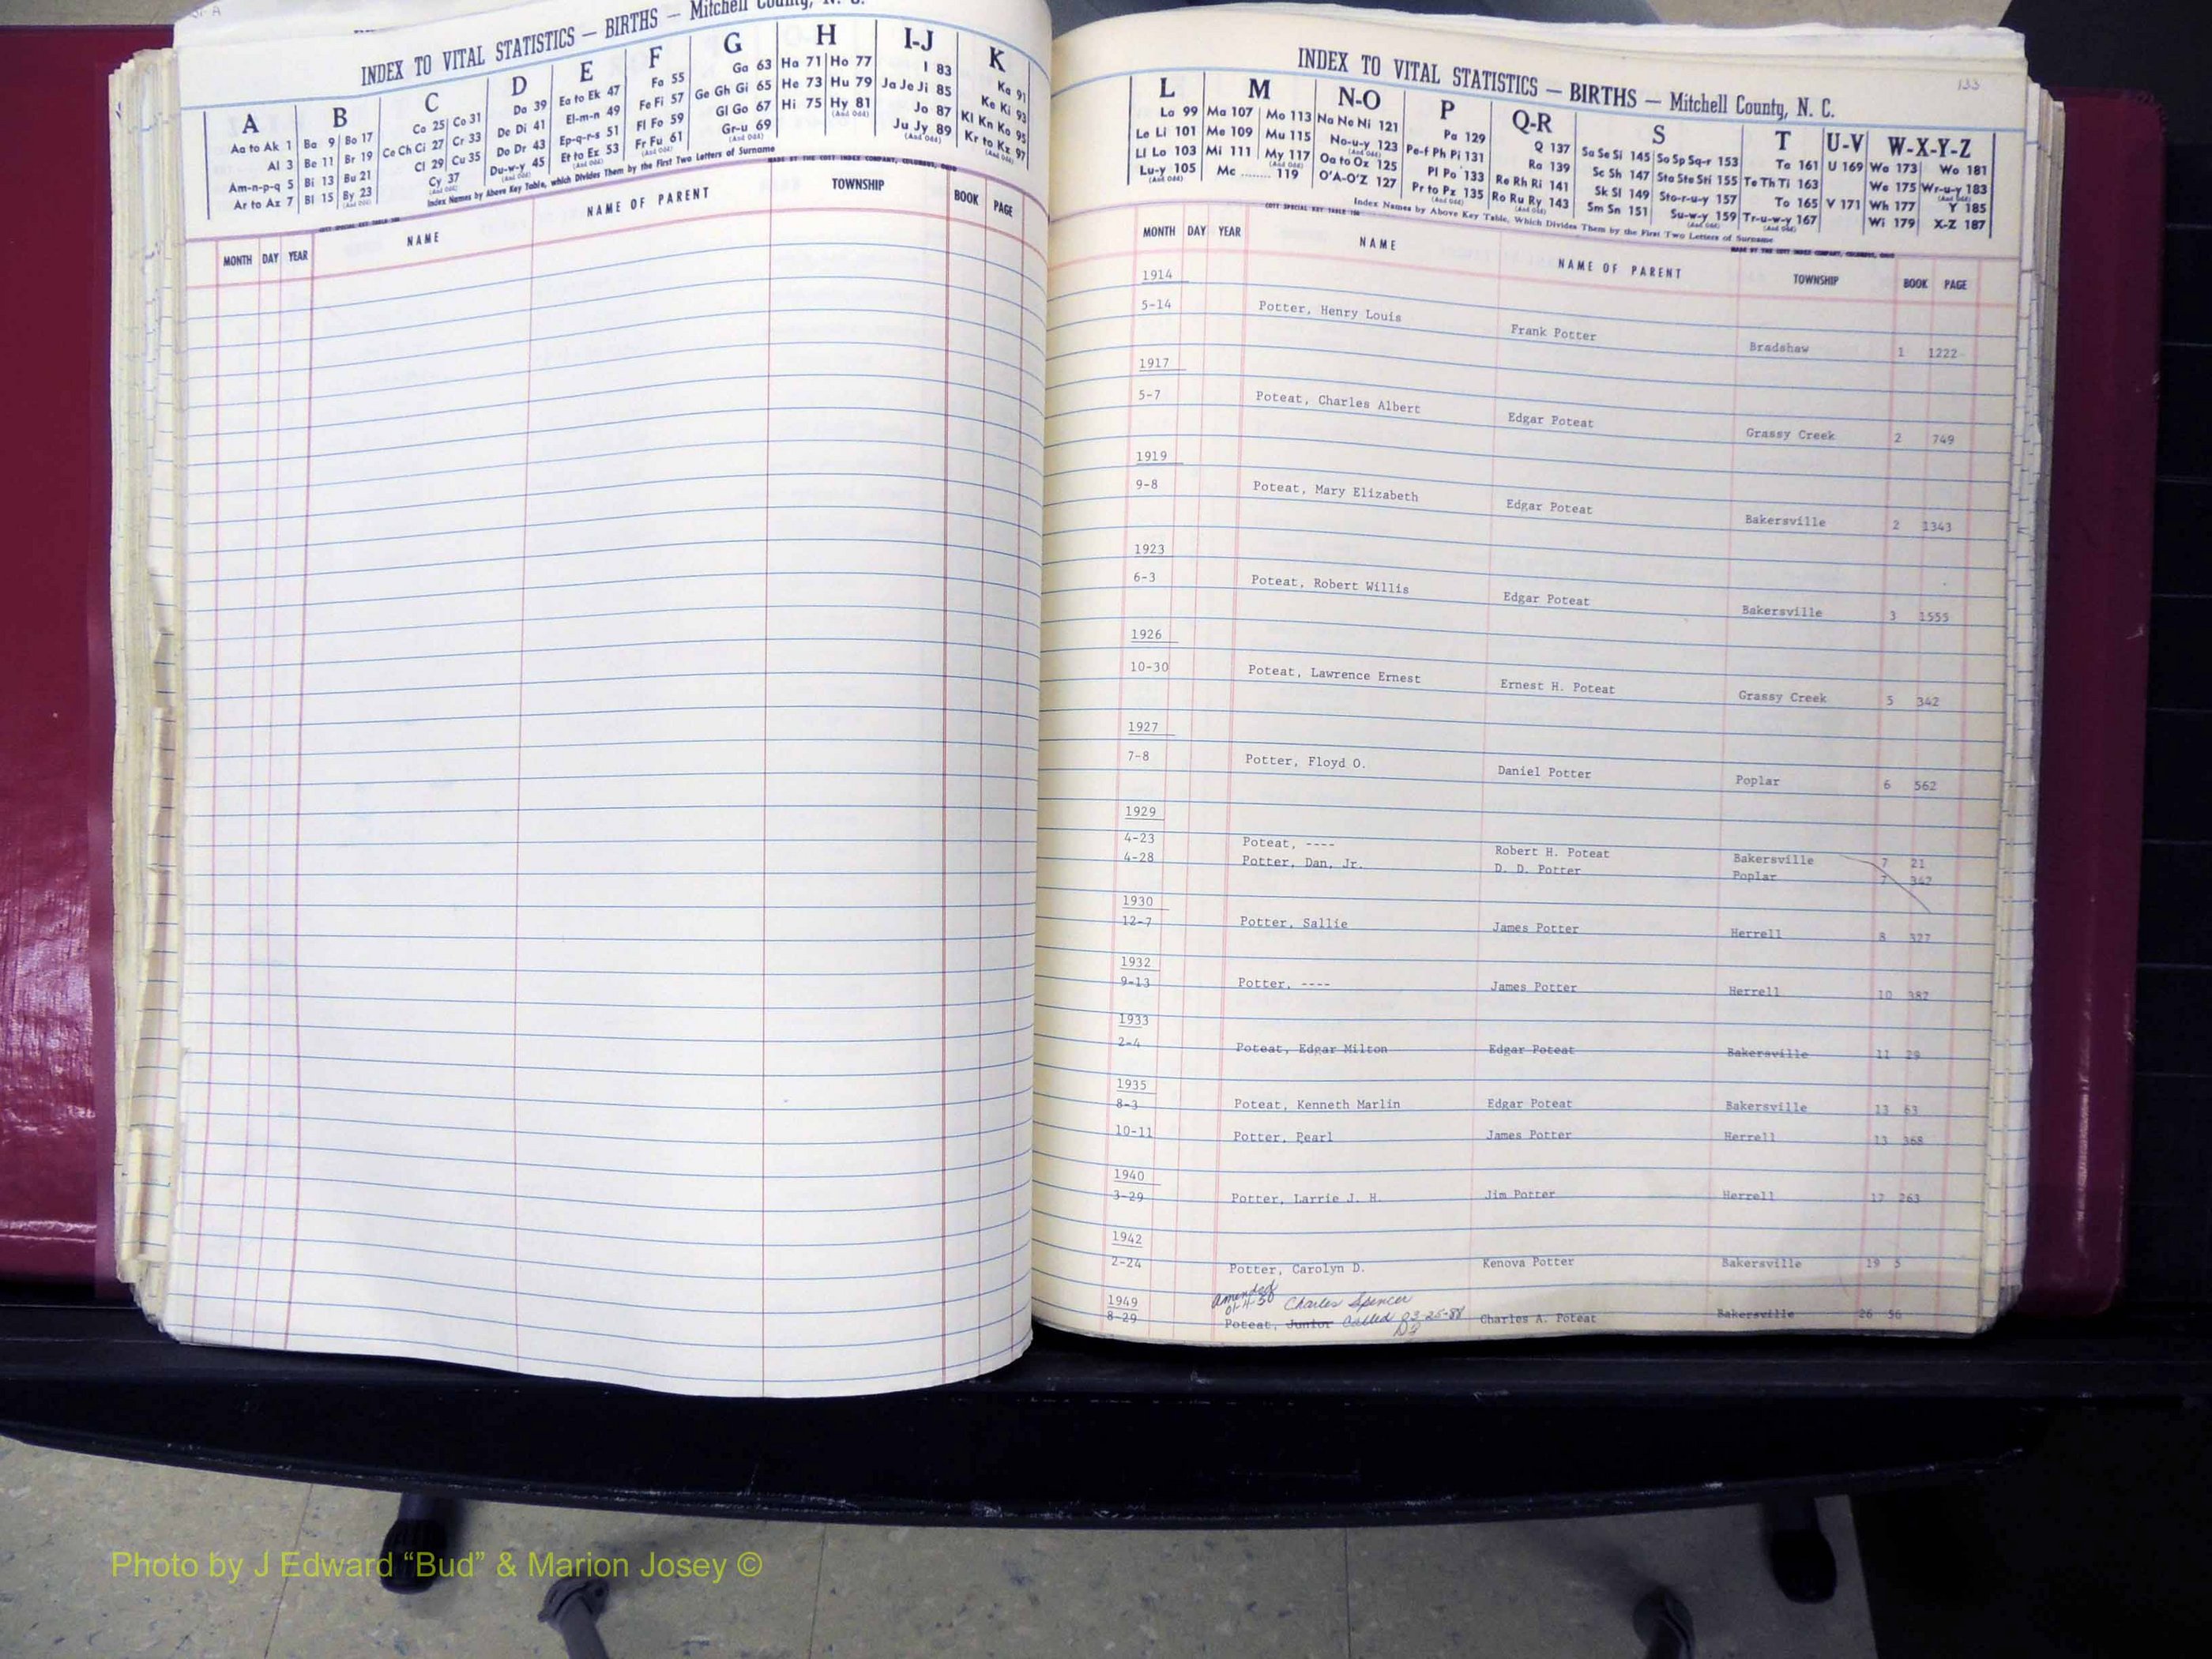 INDEX TO VITAL STATISTICS — BIRTHS — Mitchell County, N. C.
A B C D E F G H I-J K
Aa to Ak 1 Ba 9 Bo 17 Ca 25 Co 31 Da 39 Ea to Ek 47 Fa 55 Ga 63 Ha 71 Ho 77 I 83 Ka 91
Al 3 Be 11 Br 19 Ce Ch Ci 27 Cr 33 De Di 41 El-m-n 49 Fe Fi 57 Ge Gh Gi 65 He 73 Hu 79 Ja Je Ji 85 Ke Ki 93
Am-n-p-q 5 Bi 13 Bu 21 Cl 29 Cu 35 Do Dr 43 Ep-q-r-s 51 Fl Fo 59 Gl Go 67 Hi 75 Hy 81 Jo 87 Kl Kn Ko 95
Ar to Az 7 Bl 15 By 23 Cy 37 Du-w-y 45 Et to Ez 53 Fr Fu 61 Gr-u 69 Ju Jy 89 Kr to Kz 97
Index Names by Above Key Table, which Divides Them by the First Two Letters of Surname
MADE BY THE COTT INDEX COMPANY, COLUMBUS, OHIO
MONTH DAY YEAR NAME NAME OF PARENT TOWNSHIP BOOK PAGE
133
INDEX TO VITAL STATISTICS — BIRTHS — Mitchell County, N. C.
L M N-O P Q-R S T U-V W-X-Y-Z
La 99 Ma 107 Mo 113 Na Ne Ni 121 Pa 129 Q 137 Sa Se Si 145 So Sp Sq-r 153 Ta 161 U 169 Wa 173 Wo 181
Le Li 101 Me 109 Mu 115 No-u-y 123 Pe-f Ph Pi 131 Ra 139 Sc Sh 147 Sta Ste Sti 155 Te Th Ti 163 We 175 Wr-u-y 183
Ll Lo 103 Mi 111 My 117 Oa to Oz 125 Pl Po 133 Re Rh Ri 141 Sk Sl 149 Sto-r-u-y 157 To 165 V 171 Wh 177 Y 185
Lu-y 105 Mc ........ 119 O'A-O'Z 127 Pr to Pz 135 Ro Ru Ry 143 Sm Sn 151 Su-w-y 159 Tr-u-w-y 167 Wi 179 X-Z 187
Index Names by Above Key Table, Which Divides Them by the First Two Letters of Surname
MADE BY THE COTT INDEX COMPANY, COLUMBUS, OHIO
MONTH DAY YEAR NAME NAME OF PARENT TOWNSHIP BOOK PAGE
1914
5-14 Potter, Henry Louis Frank Potter Bradshaw 1 1222
1917
5-7 Poteat, Charles Albert Edgar Poteat Grassy Creek 2 749
1919
9-8 Poteat, Mary Elizabeth Edgar Poteat Bakersville 2 1343
1923
6-3 Poteat, Robert Willis Edgar Poteat Bakersville 3 1555
1926
10-30 Poteat, Lawrence Ernest Ernest H. Poteat Grassy Creek 5 342
1927
7-8 Potter, Floyd O. Daniel Potter Poplar 6 562
1929
4-23 Poteat, ---- Robert H. Poteat Bakersville 7 21
4-28 Potter, Dan, Jr. D. D. Potter Poplar 7 342
1930
12-7 Potter, Sallie James Potter Herrell 8 327
1932
9-13 Potter, ---- James Potter Herrell 10 382
1933
2-4 Poteat, Edgar Milton Edgar Poteat Bakersville 11 29
1935
8-3 Poteat, Kenneth Marlin Edgar Poteat Bakersville 13 63
10-11 Potter, Pearl James Potter Herrell 13 368
1940
3-29 Potter, Larrie J. H. Jim Potter Herrell 17 263
1942
2-24 Potter, Carolyn D. Kenova Potter Bakersville 19 5
1949 Amended Charles Spencer
8-29 Poteat, Junior Called 03-25-88 Charles A. Poteat Bakersville 26 56
Photo by J Edward “Bud” & Marion Josey ©